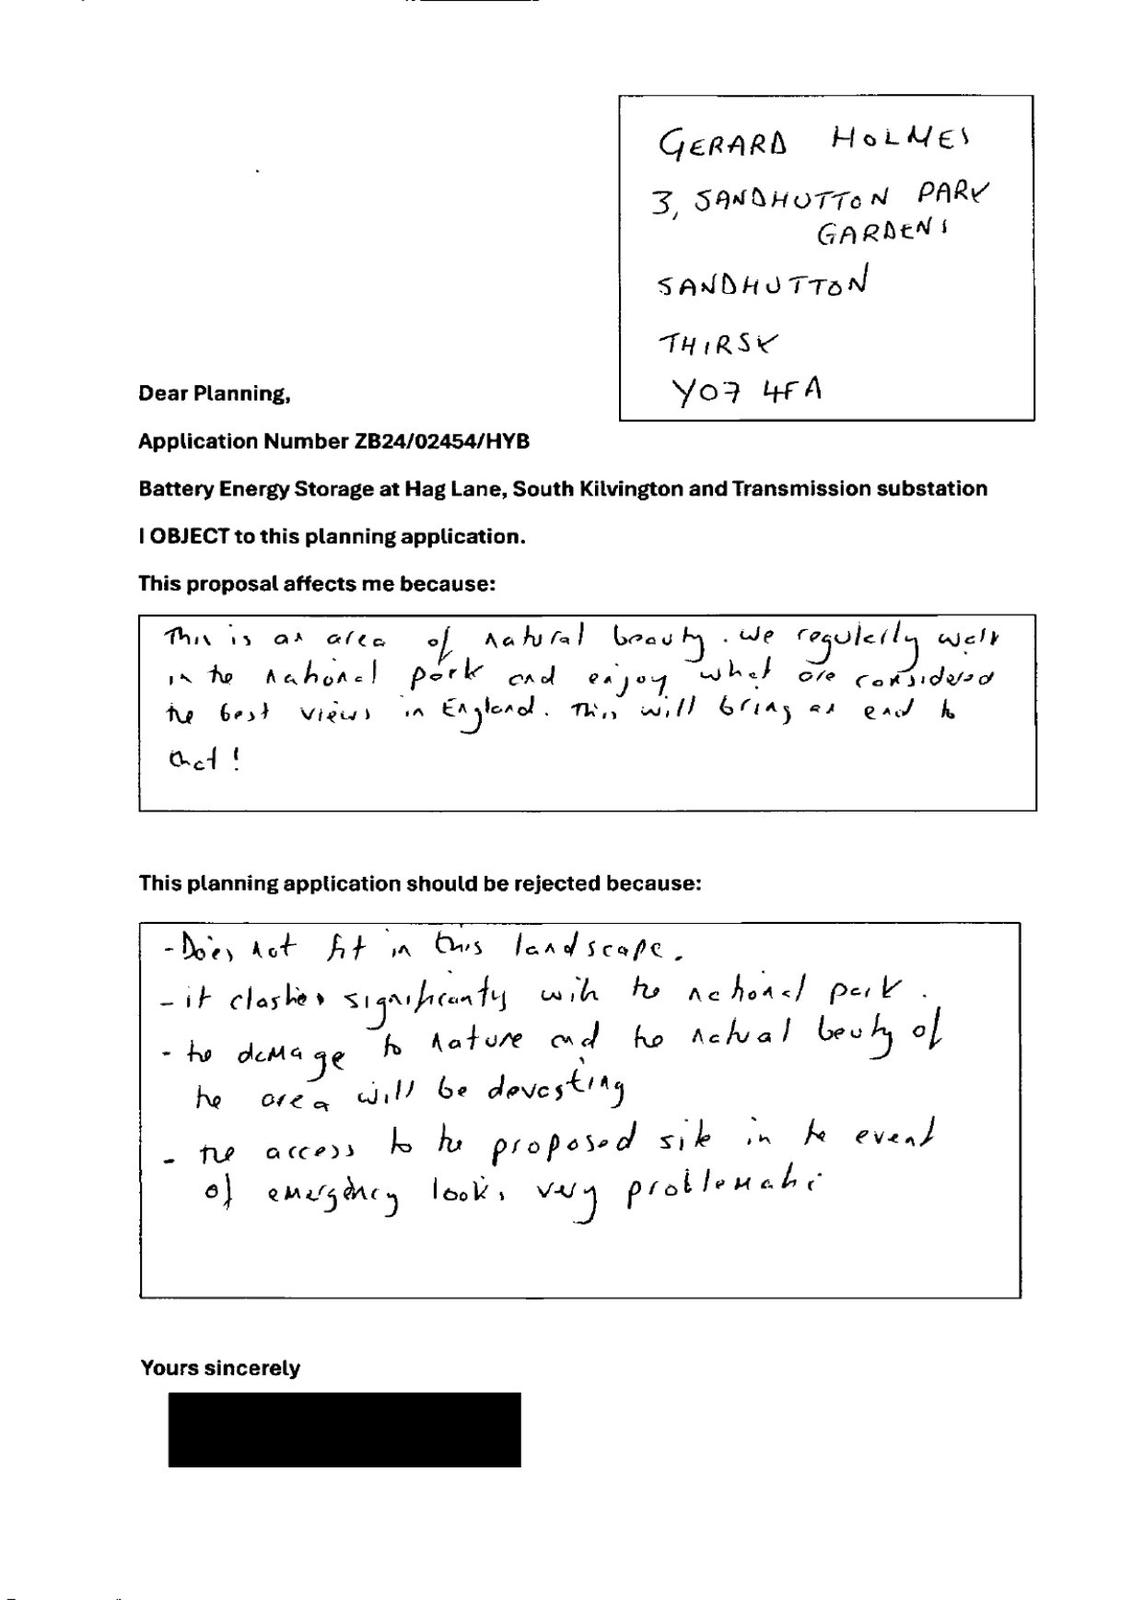 GERARD HOLMES
3, SANDHUTTON PARK
GARDENS
SANDHUTTON
THIRSK
YO7 4FA
Dear Planning,
Application Number ZB24/02454/HYB
Battery Energy Storage at Hag Lane, South Kilvington and Transmission substation
I OBJECT to this planning application.
This proposal affects me because:
This is an area of natural beauty. We regularly walk
in the national park and enjoy what are considered
the best views in England. This will bring an end to
that!
This planning application should be rejected because:
- Does not fit in this landscape.
- it clashes significantly with the national park.
- the damage to nature and the actual beuty of
the area will be devasting
- The access to the proposed site in the event
of emergency looks very problematic
Yours sincerely